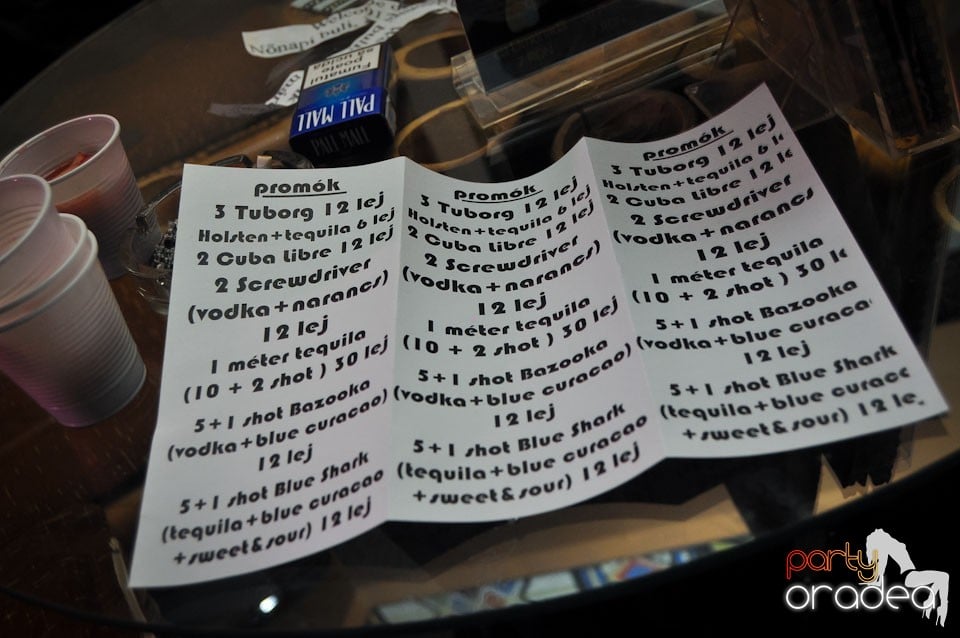 Nőnapi buli,
Fumatul
poate
să ucidă
PALL MALL
PALL MALL
promók
3 Tuborg 12 lej
Holsten+tequila 6 lej
2 Cuba Libre 12 lej
2 Screwdriver
(vodka+narancs)
12 lej
1 méter tequila
(10 + 2 shot ) 30 lej
5+1 shot Bazooka
(vodka+blue curacao)
12 lej
5+1 shot Blue Shark
(tequila+blue curacao
+sweet&sour) 12 lej
promók
3 Tuborg 12 lej
Holsten+tequila 6 lej
2 Cuba Libre 12 lej
2 Screwdriver
(vodka+narancs)
12 lej
1 méter tequila
(10 + 2 shot ) 30 lej
5+1 shot Bazooka
(vodka+blue curacao)
12 lej
5+1 shot Blue Shark
(tequila+blue curacao
+sweet&sour) 12 lej
promók
3 Tuborg 12 lej
Holsten+tequila 6 le
2 Cuba Libre 12 le
2 Screwdriver
(vodka+narancs
12 lej
1 méter tequila
(10 + 2 shot ) 30 le
5+1 shot Bazooka
(vodka+blue curacao
12 lej
5+1 shot Blue Shark
(tequila+blue curacao
+sweet&sour) 12 le
party
oradea